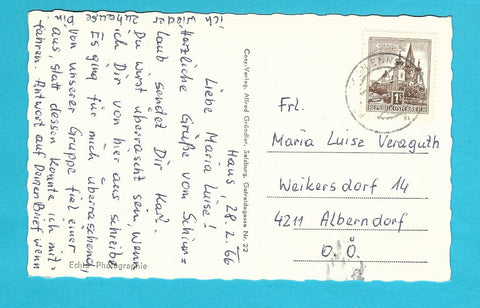 Haus 28.2.66
Liebe Maria Luise!
Herzliche Grüße vom Schiur-
laub sendet Dir Karl.
Du wirst überrascht sein, wenn
ich Dir von hier aus schreibe.
Es ging für mich überraschend,
von unserer Gruppe fiel einer
aus, statt dessen konnte ich mit-
fahren. Antwort auf Deinen Brief wenn
ich
zuhause
Cosy-Verlag, Alfred Gründler, Salzburg, Getreidegasse Nr. 22
Echte Photographie
REPUBLIK ÖSTERREICH
Frl.
Maria Luise Veraguth
Weikersdorf 14
4211 Alberndorf
O.Ö.